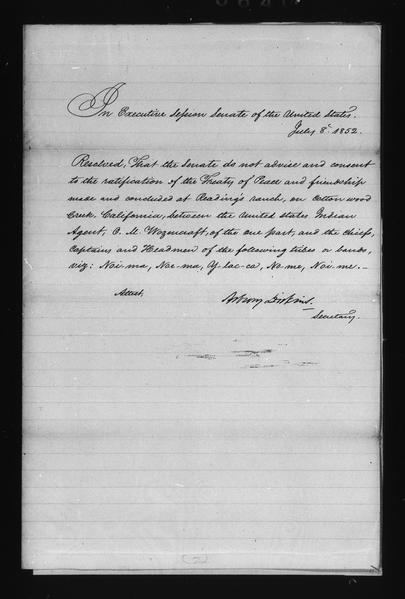 In Executive Session Senate of the United States.
July 8th 1852.
Resolved, That the Senate do not advise and consent
to the ratification of the Treaty of Peace and friendship
made and concluded at Reading's ranch, on Cotton wood
Creek, California, between the United States Indian
Agent, O. M. Wozencraft, of the one part, and the Chiefs,
Captains and Headmen of the following tribes or bands,
viz: Noi-ma, Noe-ma, Y-lac-ca, No-me, Noi-me.
Attest.
Asbury Dickins.
Secretary.